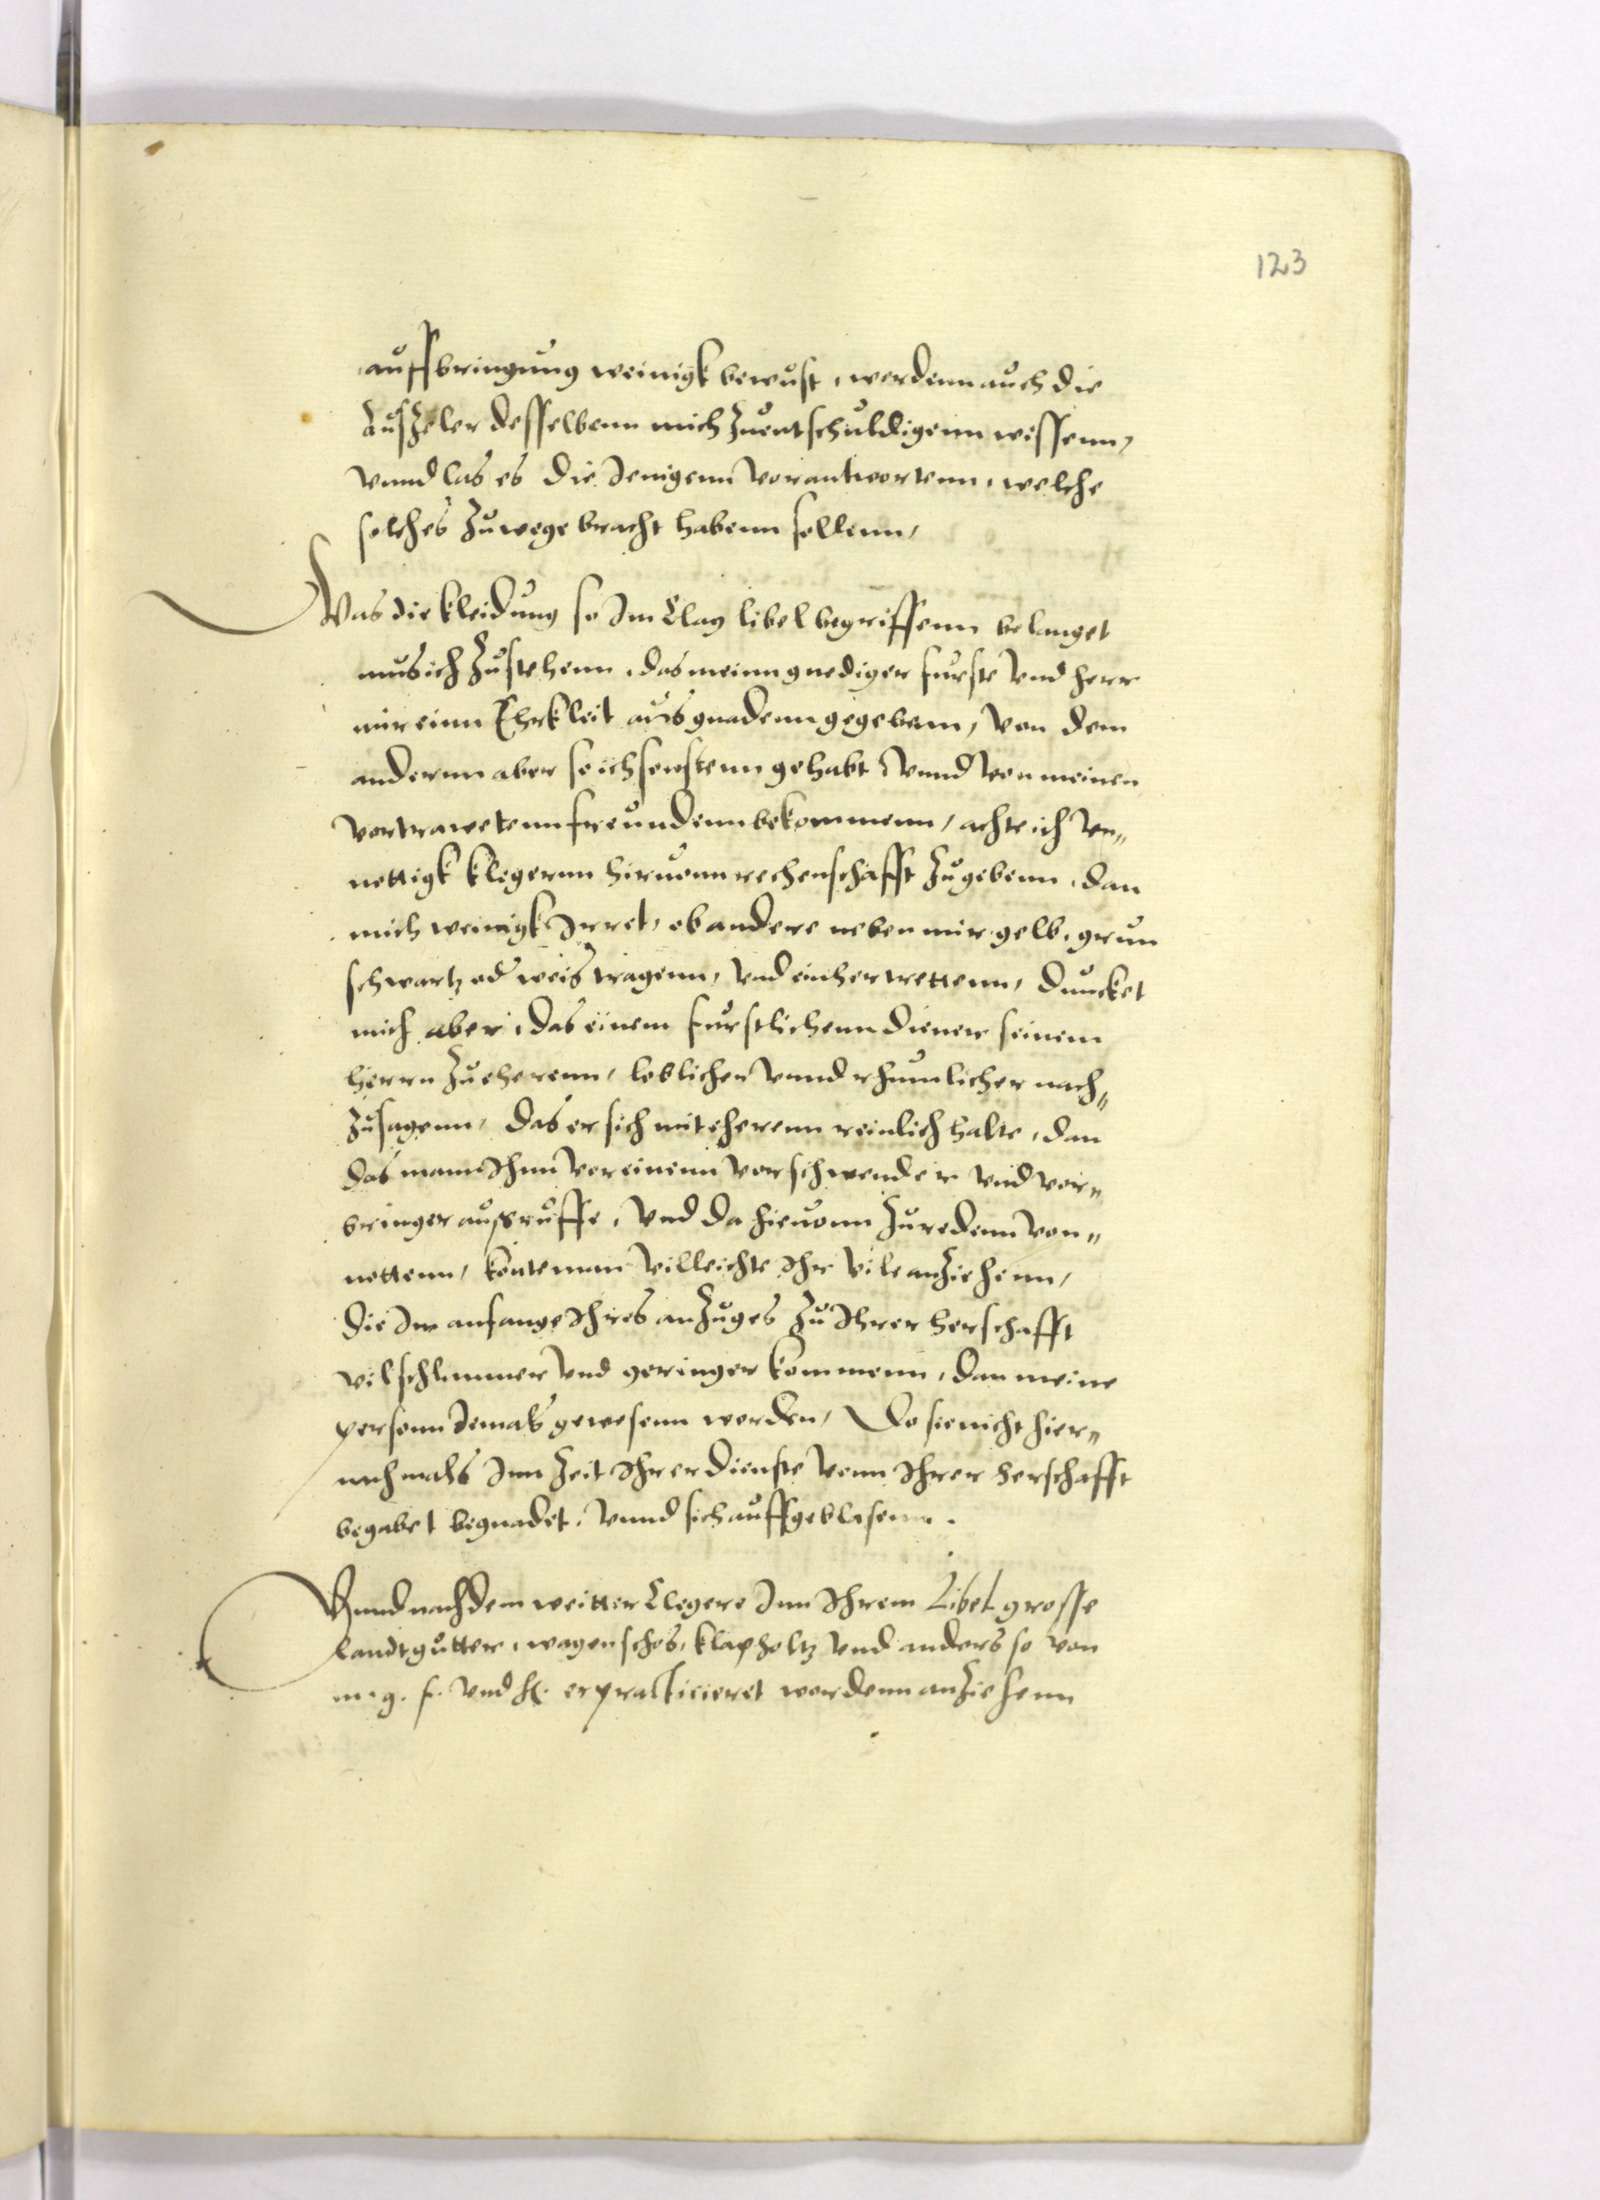 123
auffbringung weinigk bewust, werden auch die
Auszeler desselbenn mich Zuentschuldigenn wissenn,
Vnnd las es die Jenigenn vorantwortenn, welche
solches Zuwege bracht habenn sollenn,
Was die kleidung so Im Clag libel begriffenn belanget
mus ich Zustehenn, das meinn gnediger furste Vnd herr
mir einn Ehrkleit aus gnadenn gegebenn, Von dem
andernn aber so ich sonstenn gehabt Vnnd Von meinen
Vortrawetenn freundenn bekommenn, achte ich Vn„
nottigk klegernn hieruonn rechenschafft Zugebenn, dan
mich weinigk Irret, ob andere neben mir gelb, grun
schwartz od weis tragenn, Vnd einher trettenn, duncket
mich aber, das einem furstlichenn diener seinem
herrn Zu eherenn, loblicher Vnnd rhumlicher nach„
Zusagenn, das er sich mit eherenn reinlich halte, dan
das mann Ihnn Vor einenn Vorschwender Vnd Vor„
bringer ausruffe, Vnd da hieuonn Zuredenn Von„
nottenn, konte man Villeichte Ihr Vile anziehenn,
die Im anfange Ihres anzuges Zu Ihrer herschafft
Vil schlimmer Vnd geringer kommenn, dan meine
personn Iemals gewesenn worden, Do sie nicht hier„
nachmals Inn Zeit Ihrer dienste Vonn Ihrer herschafft
begabet begnadet, Vnnd sich auffgeblasenn.
Vnnd nachdem weitter Clegere Inn Ihrem Libel grosse
landtgutter, wagenschos, klapholtz Vnd anders so Von
m. g. f. Vnd H. erpracticieret wordenn anziehenn